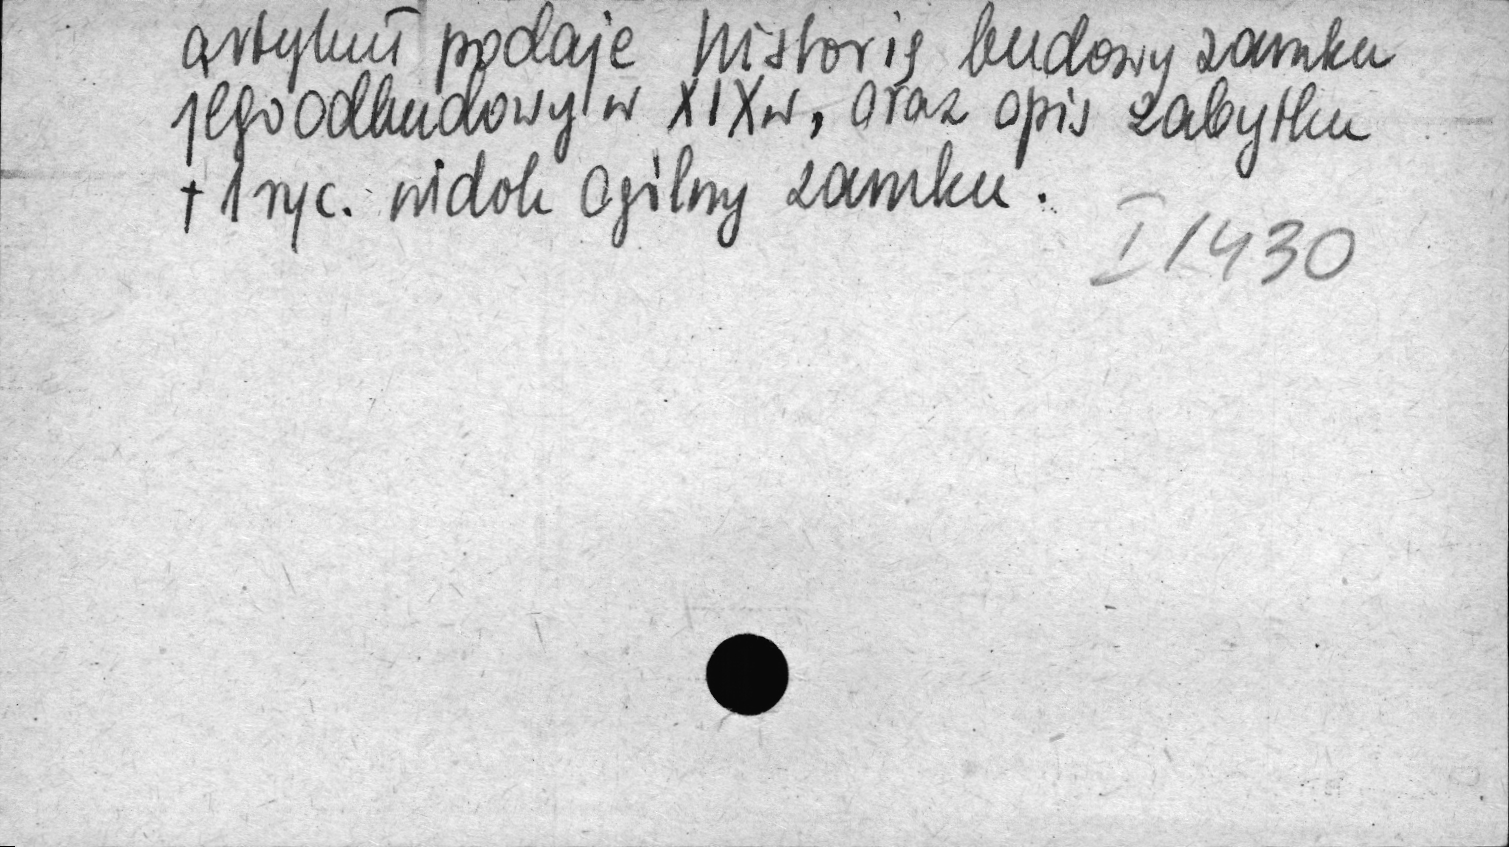 artykuł podaje historię budowy zamku
jego odbudowy w XIX w, oraz opis zabytku
+ 1 ryc. widok ogólny zamku.
I/430